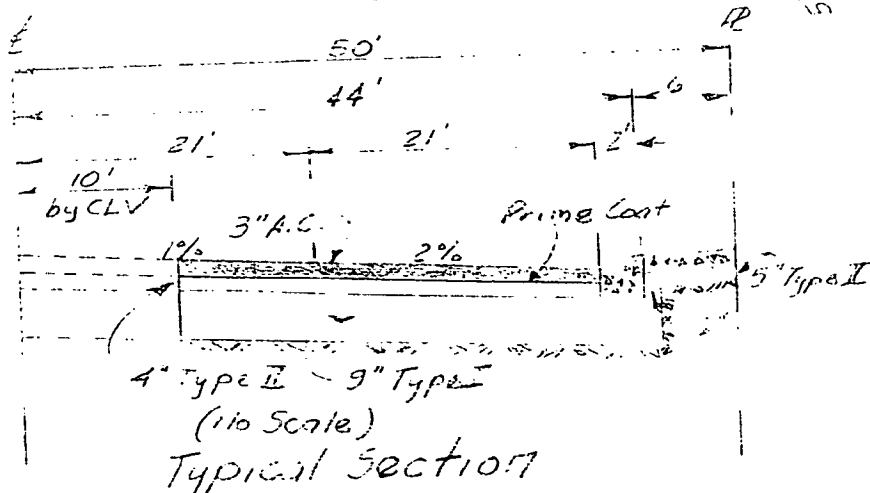 50'
44'
6
21' 21' 2'
10'
by CLV
3" A.C.
Prime Coat
1% 2%
5" Type II
4" Type II 9" Type I
(No Scale)
Typical Section